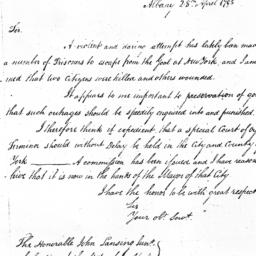 Albany 28th April 1795
Sir.
A violent and daring attempt has lately been made
a number of Prisoners to escape from the Goal at New York, and I am
med that two Citizens were killed and others wounded.
It appears to me important to preservation of go
that such outrages should be speedily enquired into and punished.
I therefore think it expedient that a special Court of oy
Terminer should without Delay be held in the City and County
York. A commission has been issued and I have reason
lieve that it is now in the hands of the Mayor of that City
I have the honor to be with great respect
Sir
Your Obt Servt.
The Honorable John Lansing Junr.